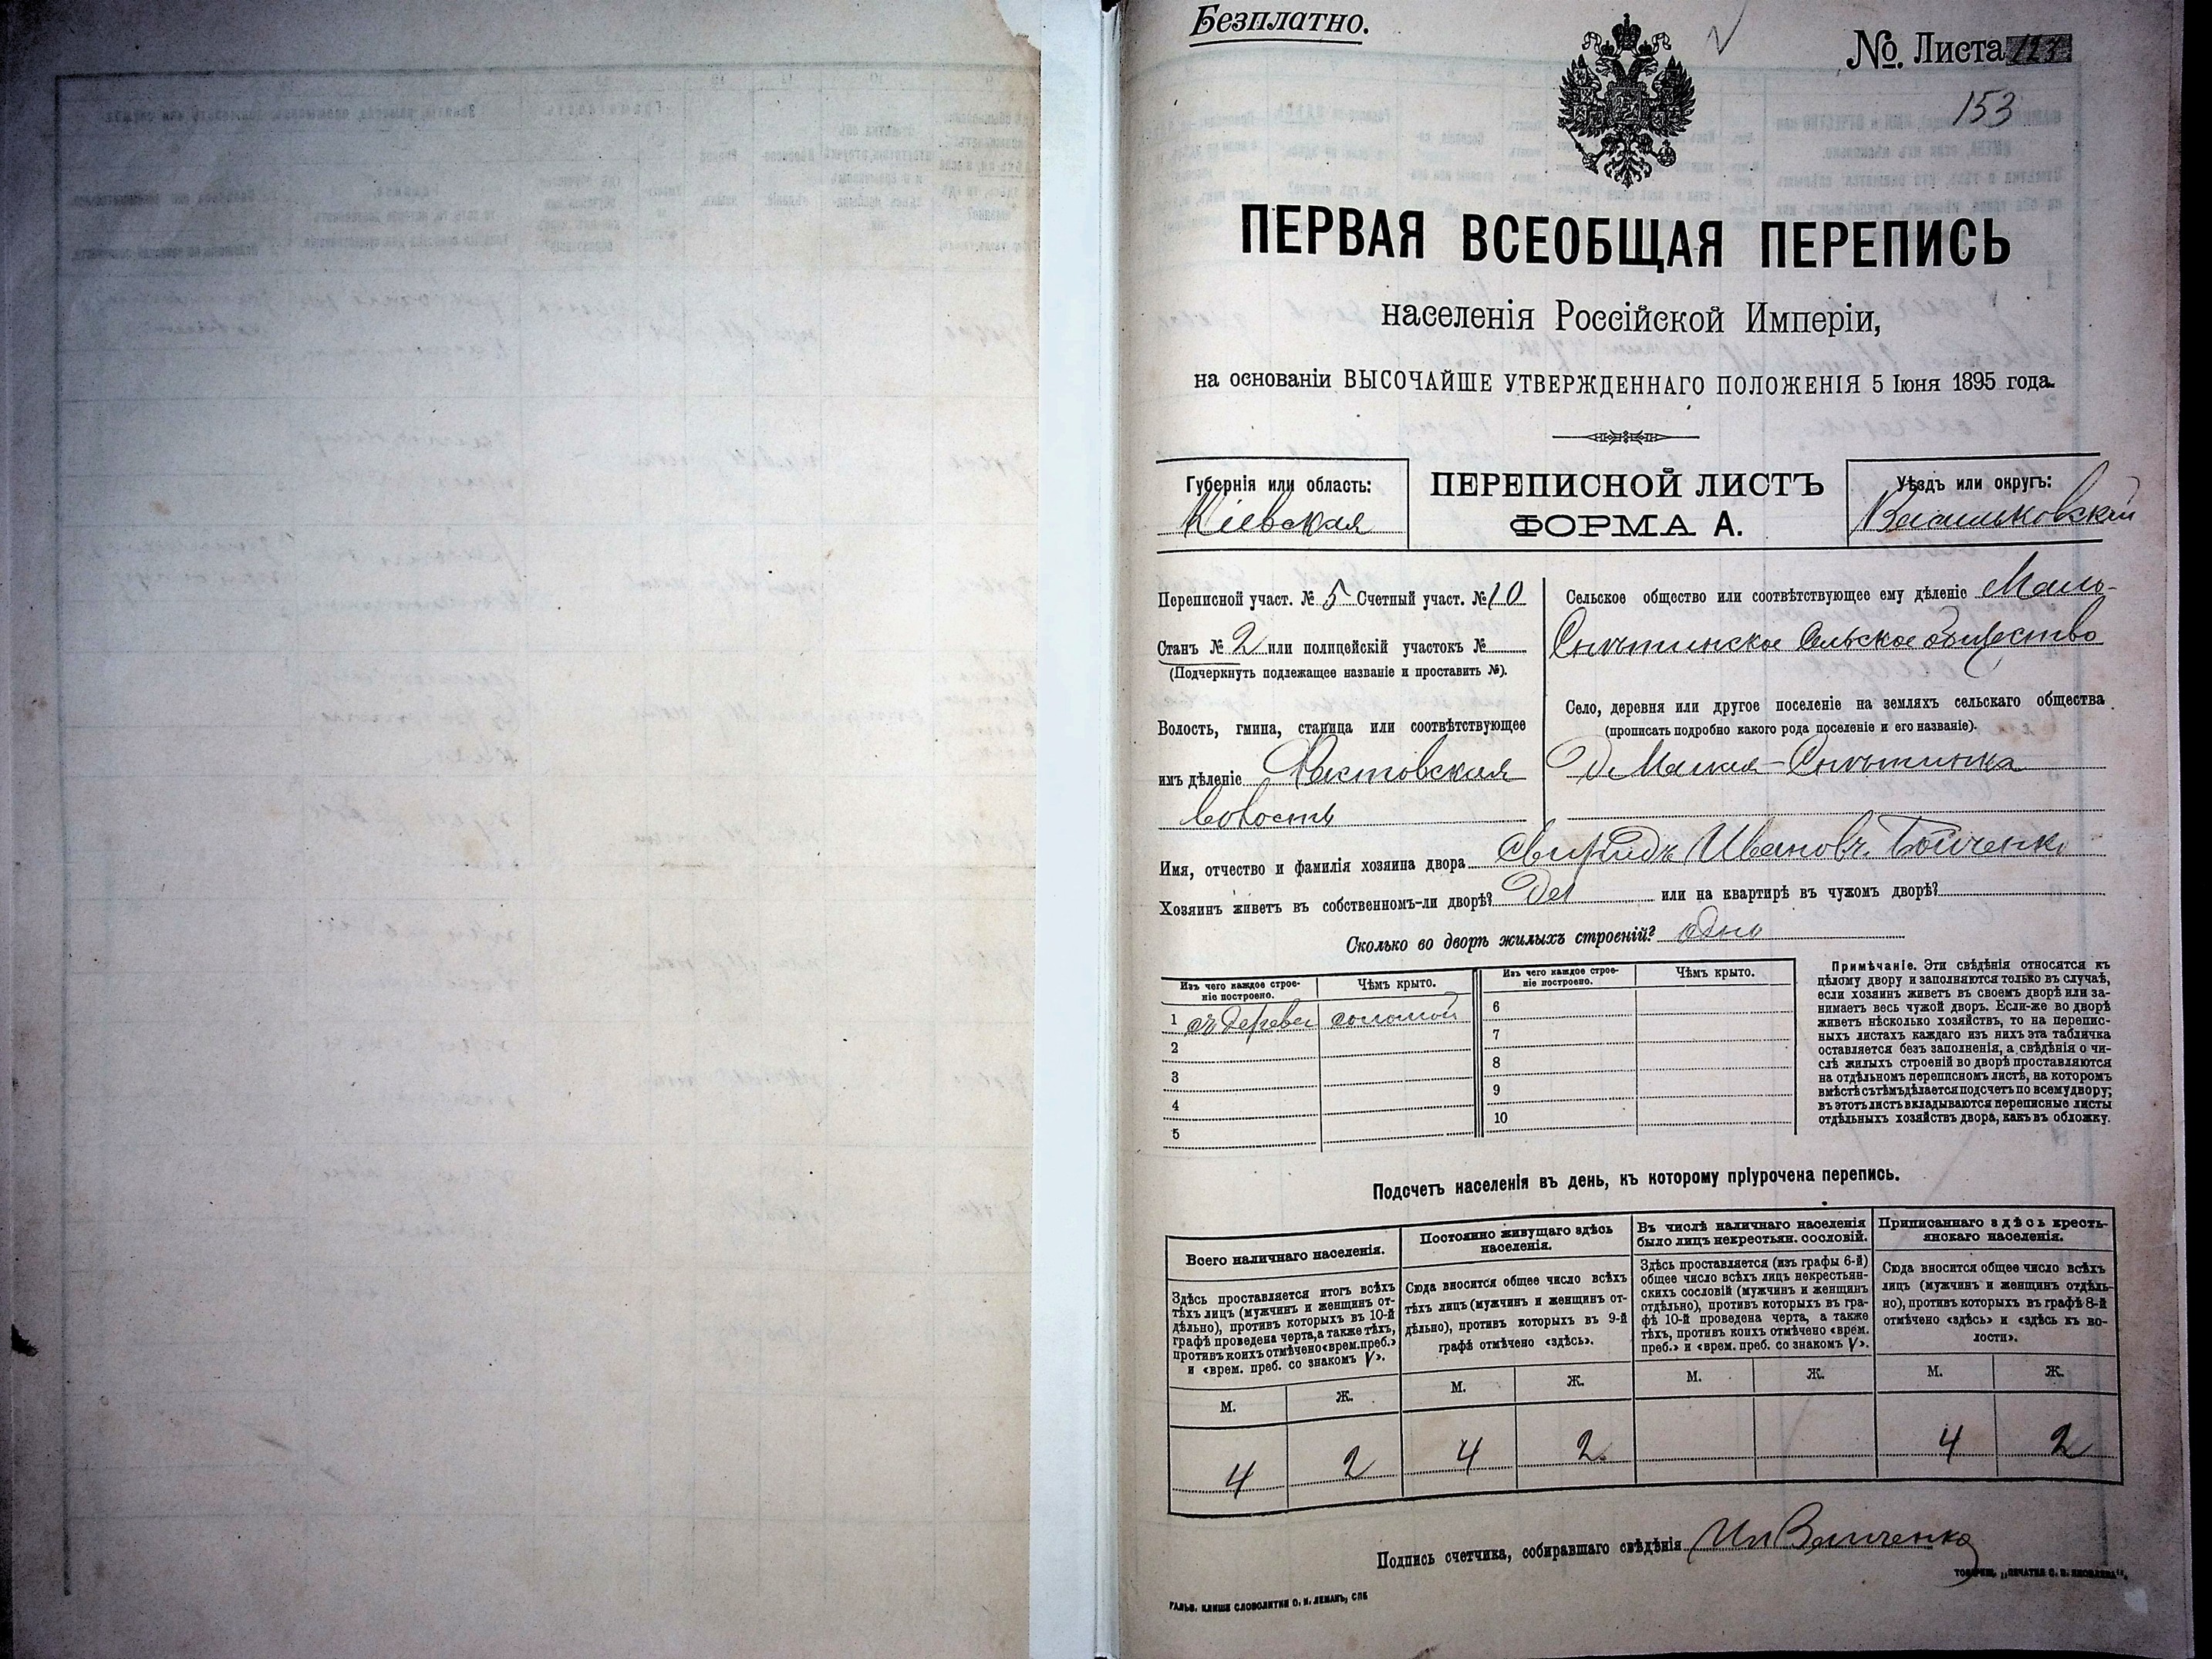 Безплатно.
№ Листа 123
153
ПЕРВАЯ ВСЕОБЩАЯ ПЕРЕПИСЬ
населенія Россійской Имперіи,
на основаніи ВЫСОЧАЙШЕ УТВЕРЖДЕННАГО ПОЛОЖЕНІЯ 5 Іюня 1895 года.
Губернія или область:
Кіевская
ПЕРЕПИСНОЙ ЛИСТЪ
ФОРМА А.
Уѣздъ или округъ:
Васильковскій
Переписной участ. № 5 Счетный участ. № 10
Станъ № 2 или полицейскій участокъ №
(Подчеркнуть подлежащее названіе и проставить №).
Волость, гмина, станица или соотвѣтствующее
имъ дѣленіе Фастовская
волость
Сельское общество или соотвѣтствующее ему дѣленіе Мало-
Снѣтинское сельское общество
Село, деревня или другое поселеніе на земляхъ сельскаго общества
(прописать подробно какого рода поселеніе и его названіе).
д. Малая-Снѣтинка
Имя, отчество и фамилія хозяина двора Свиридъ Ивановъ Бойченко
Хозяинъ живетъ въ собственномъ-ли дворѣ? Да или на квартирѣ въ чужомъ дворѣ?
Сколько во дворѣ жилыхъ строеній? одно
Изъ чего каждое строе-
ніе построено.
Чѣмъ крыто.
Изъ чего каждое строе-
ніе построено.
Чѣмъ крыто.
1 съ дерева соломой
2
3
4
5
6
7
8
9
10
Примѣчаніе. Эти свѣдѣнія относятся къ
цѣлому двору и заполняются только въ случаѣ,
если хозяинъ живетъ въ своемъ дворѣ или за-
нимаетъ весь чужой дворъ. Если-же во дворѣ
живетъ нѣсколько хозяйствъ, то на перепис-
ныхъ листахъ каждаго изъ нихъ эта табличка
оставляется безъ заполненія, а свѣдѣнія о чи-
слѣ жилыхъ строеній во дворѣ проставляются
на отдѣльномъ переписномъ листѣ, на которомъ
вмѣстѣ съ тѣмъ дѣлается подсчетъ по всему двору;
въ этотъ листъ вкладываются переписные листы
отдѣльныхъ хозяйствъ двора, какъ въ обложку.
Подсчетъ населенія въ день, къ которому пріурочена перепись.
Всего наличнаго населенія.
Здѣсь проставляется итогъ всѣхъ
тѣхъ лицъ (мужчинъ и женщинъ от-
дѣльно), противъ которыхъ въ 10-й
графѣ проведена черта, а также тѣхъ,
противъ коихъ отмѣчено «врем. преб.»
и «врем. преб. со знакомъ V».
М. Ж.
4 2
Постоянно живущаго здѣсь
населенія.
Сюда вносится общее число всѣхъ
тѣхъ лицъ (мужчинъ и женщинъ от-
дѣльно), противъ которыхъ въ 9-й
графѣ отмѣчено «здѣсь».
М. Ж.
4 2
Въ числѣ наличнаго населенія
было лицъ некрестьян. сословій.
Здѣсь проставляется (изъ графы 6-й)
общее число всѣхъ лицъ некрестьян-
скихъ сословій (мужчинъ и женщинъ
отдѣльно), противъ которыхъ въ гра-
фѣ 10-й проведена черта, а также
тѣхъ, противъ коихъ отмѣчено «врем.
преб.» и «врем. преб. со знакомъ V».
М. Ж.
Приписаннаго здѣсь кресть-
янскаго населенія.
Сюда вносится общее число всѣхъ
лицъ (мужчинъ и женщинъ отдѣль-
но), противъ которыхъ въ графѣ 8-й
отмѣчено «здѣсь» и «здѣсь къ во-
лости».
М. Ж.
4 2
Подпись счетчика, собиравшаго свѣдѣнія
ТОВАРИЩ. „ПЕЧАТНЯ С. П. ЯКОВЛЕВА".
ГАЛЬВ. КЛИШЕ СЛОВОЛИТНИ О. И. ЛЕМАНЪ, СПБ